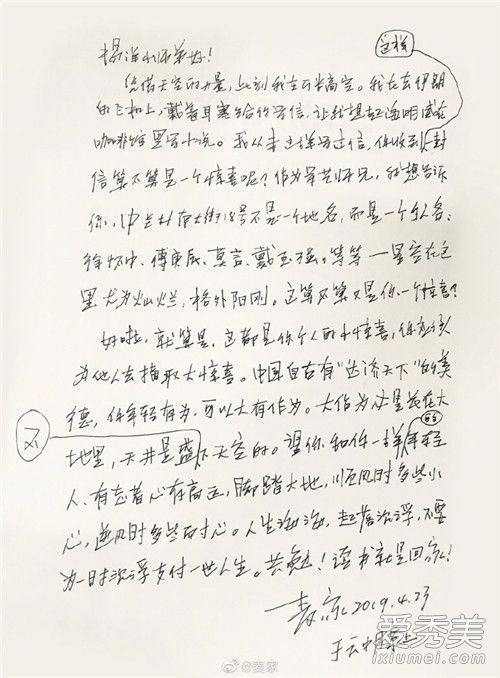 杨洋小师弟好！
凭借天空的力量，此刻我在万米高空。我在去伊朗
的飞机上，戴着耳塞给你写信，让我想起海明威在
咖啡馆里写小说。我从未这样写过信，你收到这样一封
信算不算是一个惊喜呢？作为军艺师兄，我想告诉
你，中关村南大街18号不是一个地名，而是一个个人名：
徐怀中、傅庚辰、莫言、戴玉强。等等——星空在这
里尤为灿烂，格外阳刚。这算不算又是你一个惊喜？
好啦，就算是，这都是你个人的小惊喜，你应该
为他人去摘取大惊喜。中国自古有“达济天下”的美
德，你年轻有为，可以大有作为。大作为必是长在大
地里，天井是盛不下天空的。望你和你一样的年轻
人，有志者心存高远，脚踏大地，顺风时多些小
心，逆风时多些耐心。人生海海，起落沉浮，不要
为一时沉浮支付一世人生。共勉！读书就是回家！
麦家 2019.4.23
于云端上
@麦家
爱秀美
ixiumei.com